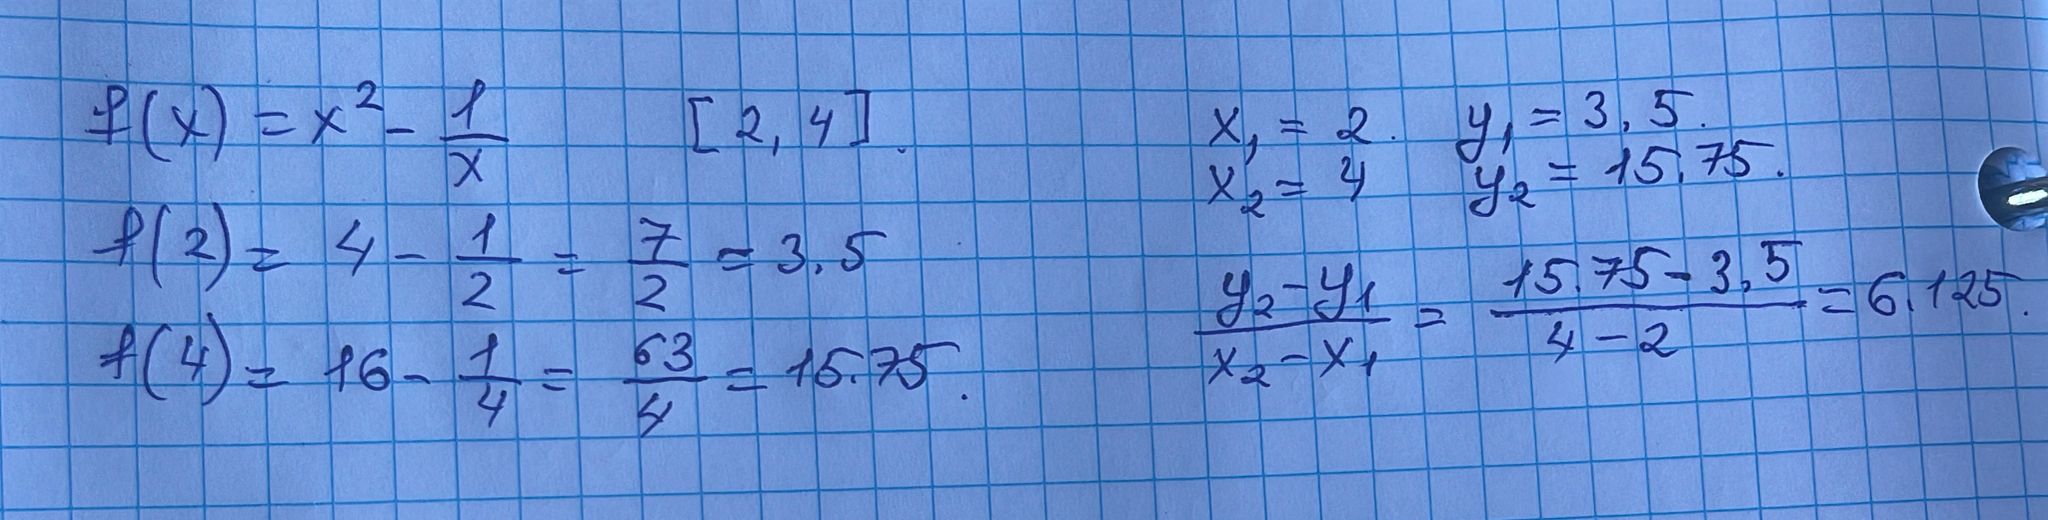 f(x) = x² - 1/x [2, 4].
f(2) = 4 - 1/2 = 7/2 = 3.5
f(4) = 16 - 1/4 = 63/4 = 15.75.
x₁ = 2. y₁ = 3,5.
x₂ = 4 y₂ = 15.75.
(y₂ - y₁)/(x₂ - x₁) = (15.75 - 3,5)/(4 - 2) = 6.125.